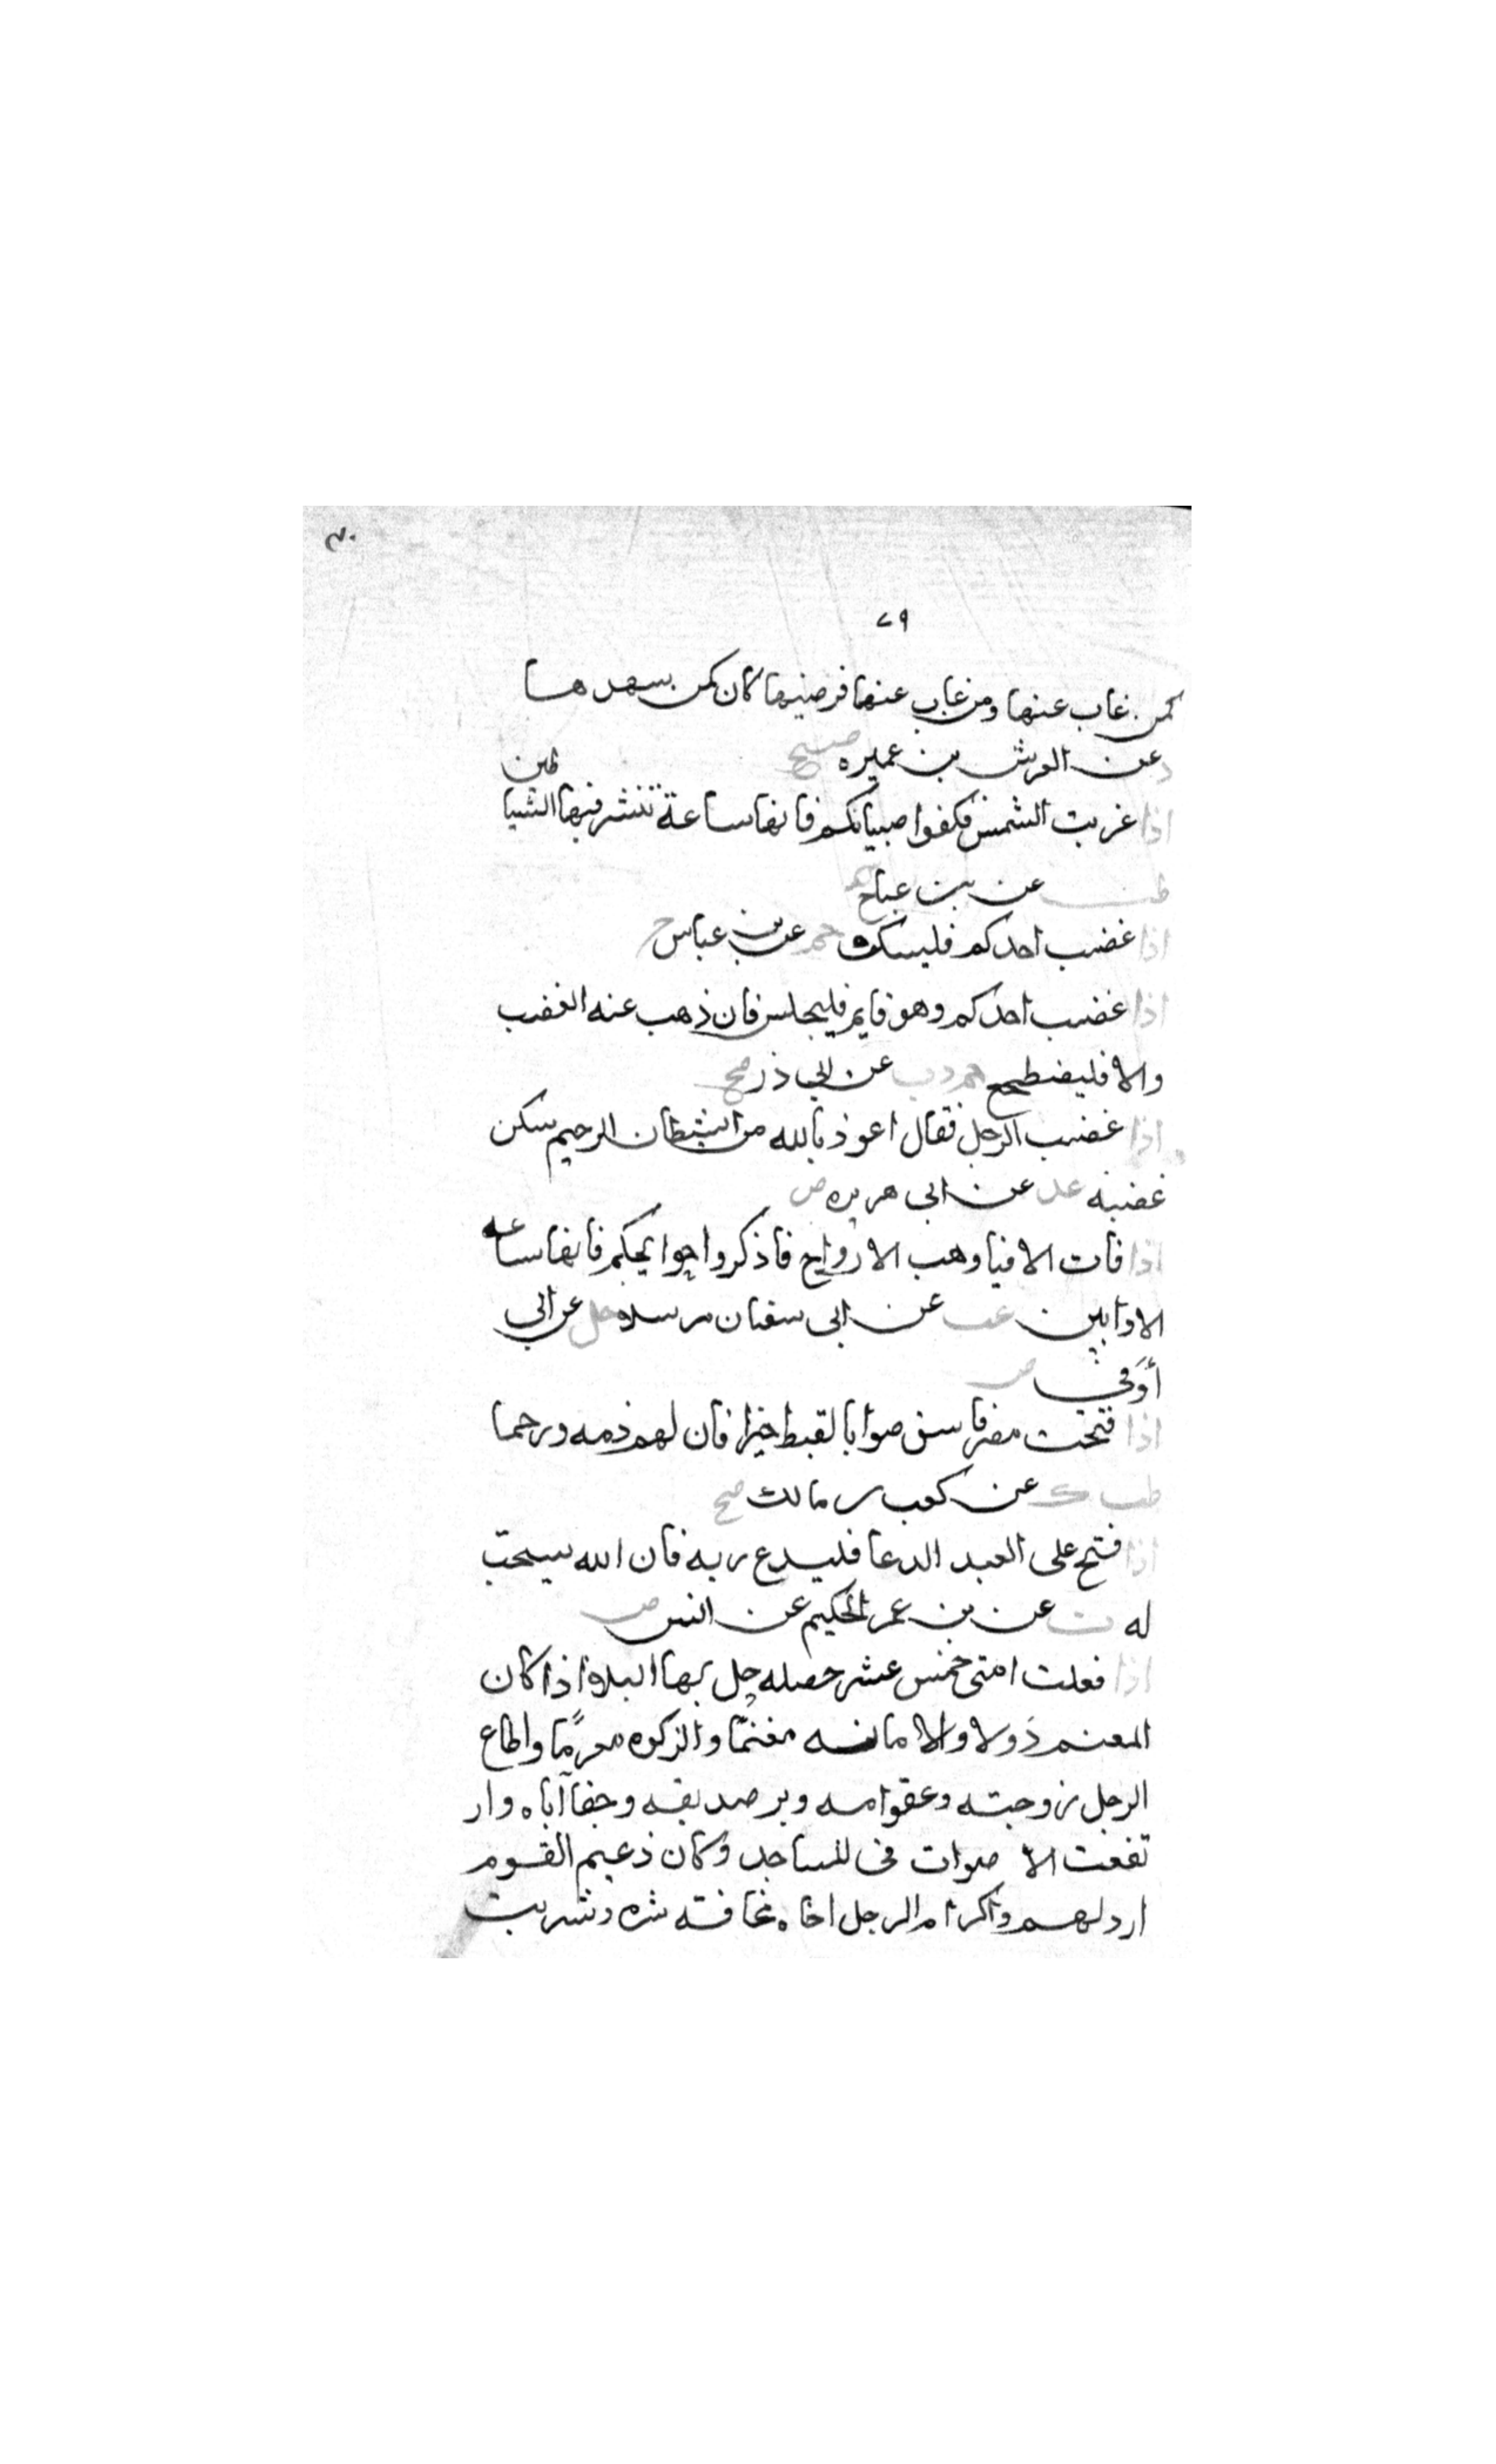 ٣٠
٢٩
كمن غاب عنها ومن غاب عنها فرضيها كان كمن سهدها
د عن العرش بن عميره صح
اذا غربت الشمس فكفوا صبيانكم فانها ساعة تنتشر فيها الشيا طين
طب عن بن عباس
اذا غضب احدكم فليسكت حم عن بن عباس ح
اذا غضب احدكم وهو قايم فليجلس فان ذهب عنه الغضب
والا فليضطجع حم د حب عن ابي ذر صح
اذا غضب الرجل فقال اعوذ بالله من الشيطان الرجيم سكن
غضبه عد عن ابى هريره ض
اذا فات الافيا وهب الارواح فاذكروا حوايجكم فانها ساعه
الاوابين عب عن ابى سفيان مرسلا حل عن ابي
أوفى ض
اذا فتحت مصر فاستوصوا بالقبط خيرا فان لهم ذمه ورحما
طب ك عن كعب بن مالك صح
اذا فتح على العبد الدعا فليدع ربه فان الله يستجب
له ت عن بن عمر الحكيم عن انس ض
اذا فعلت امتى خمس عشر خصله حل بها البلا اذا كان
المغنم دولا والامانه مغنمًا والزكوه مغرمًا واطاع
الرجل زوجته وعقوامه وبر صديقه وجفا آباه وار
تفعت الا صوات فى المساجد وكان زعيم القوم
اردلهم واكرام الرجل اخاه مخافته شره وشربت